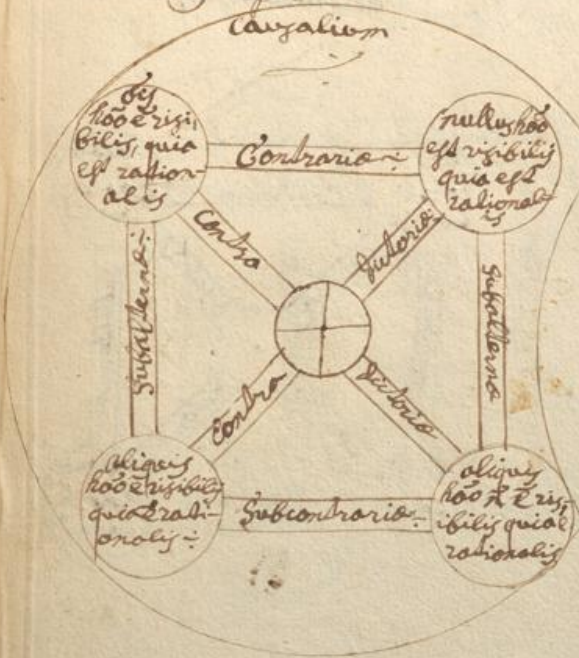 causalium
oīs
hōō ē risi-
bilis, quia
est ration-
alis
Contrariæ
nullus hōō
est risibilis
quia est
rationalis
Contra
dictoriæ
Subalternæ
Subalternæ
Contra
dictoriæ
aliquis
hōō ē risibilis
quia ē rati-
onalis
Subcontrariæ
aliquis
hōō ē ris-
ibilis quia ē
rationalis